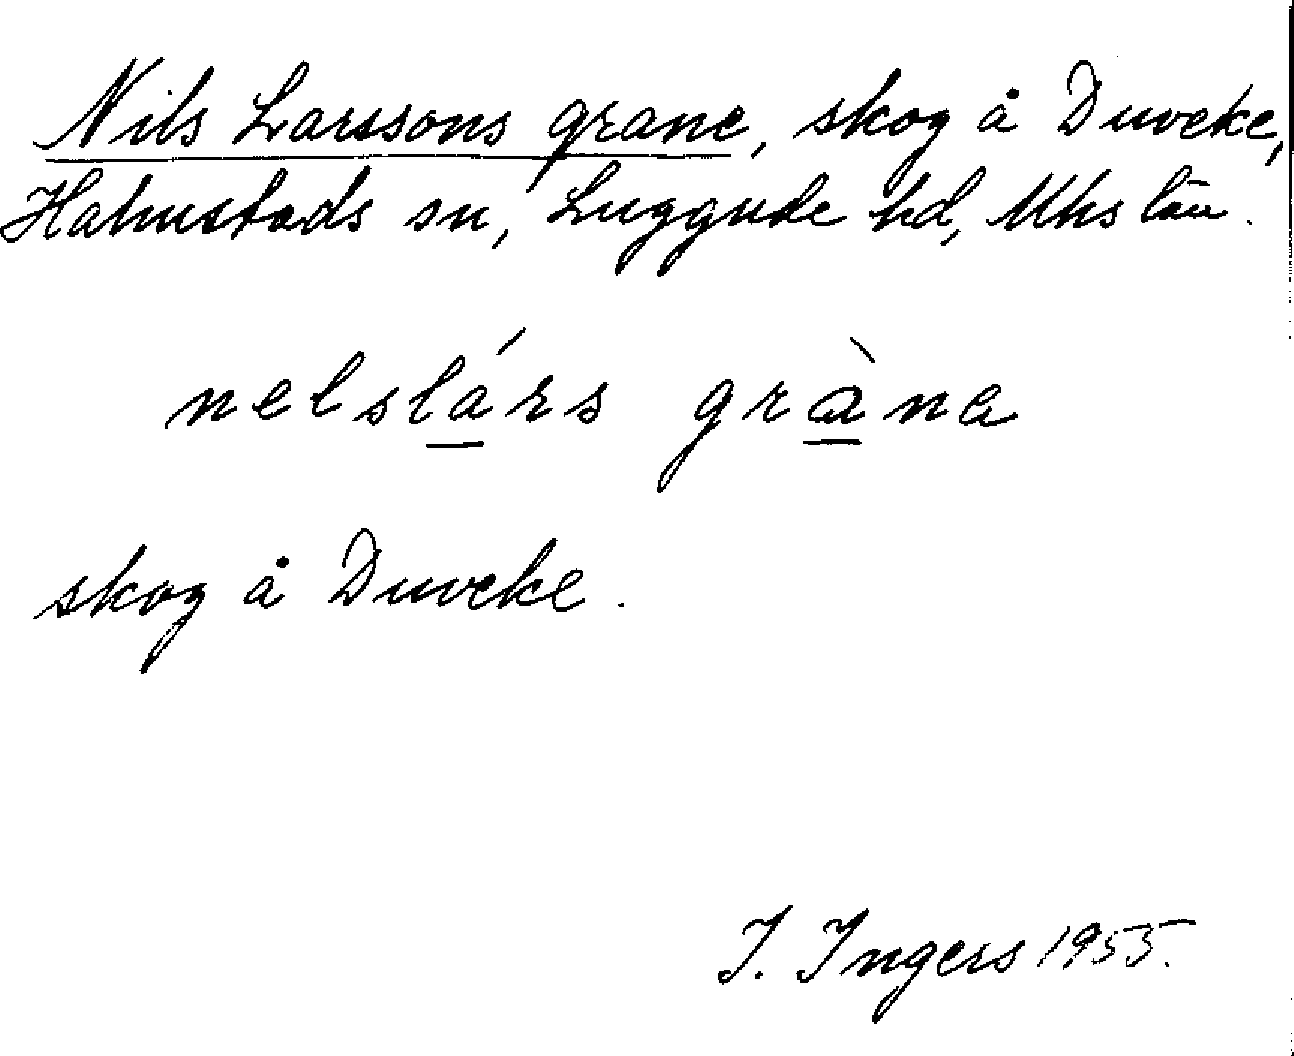 Nils Larssons grane, skog å Duveke,
Halmstads sn, Luggude hd, Mhs län.
nelslárs gràna
skog å Duveke.
I. Ingers 1955.